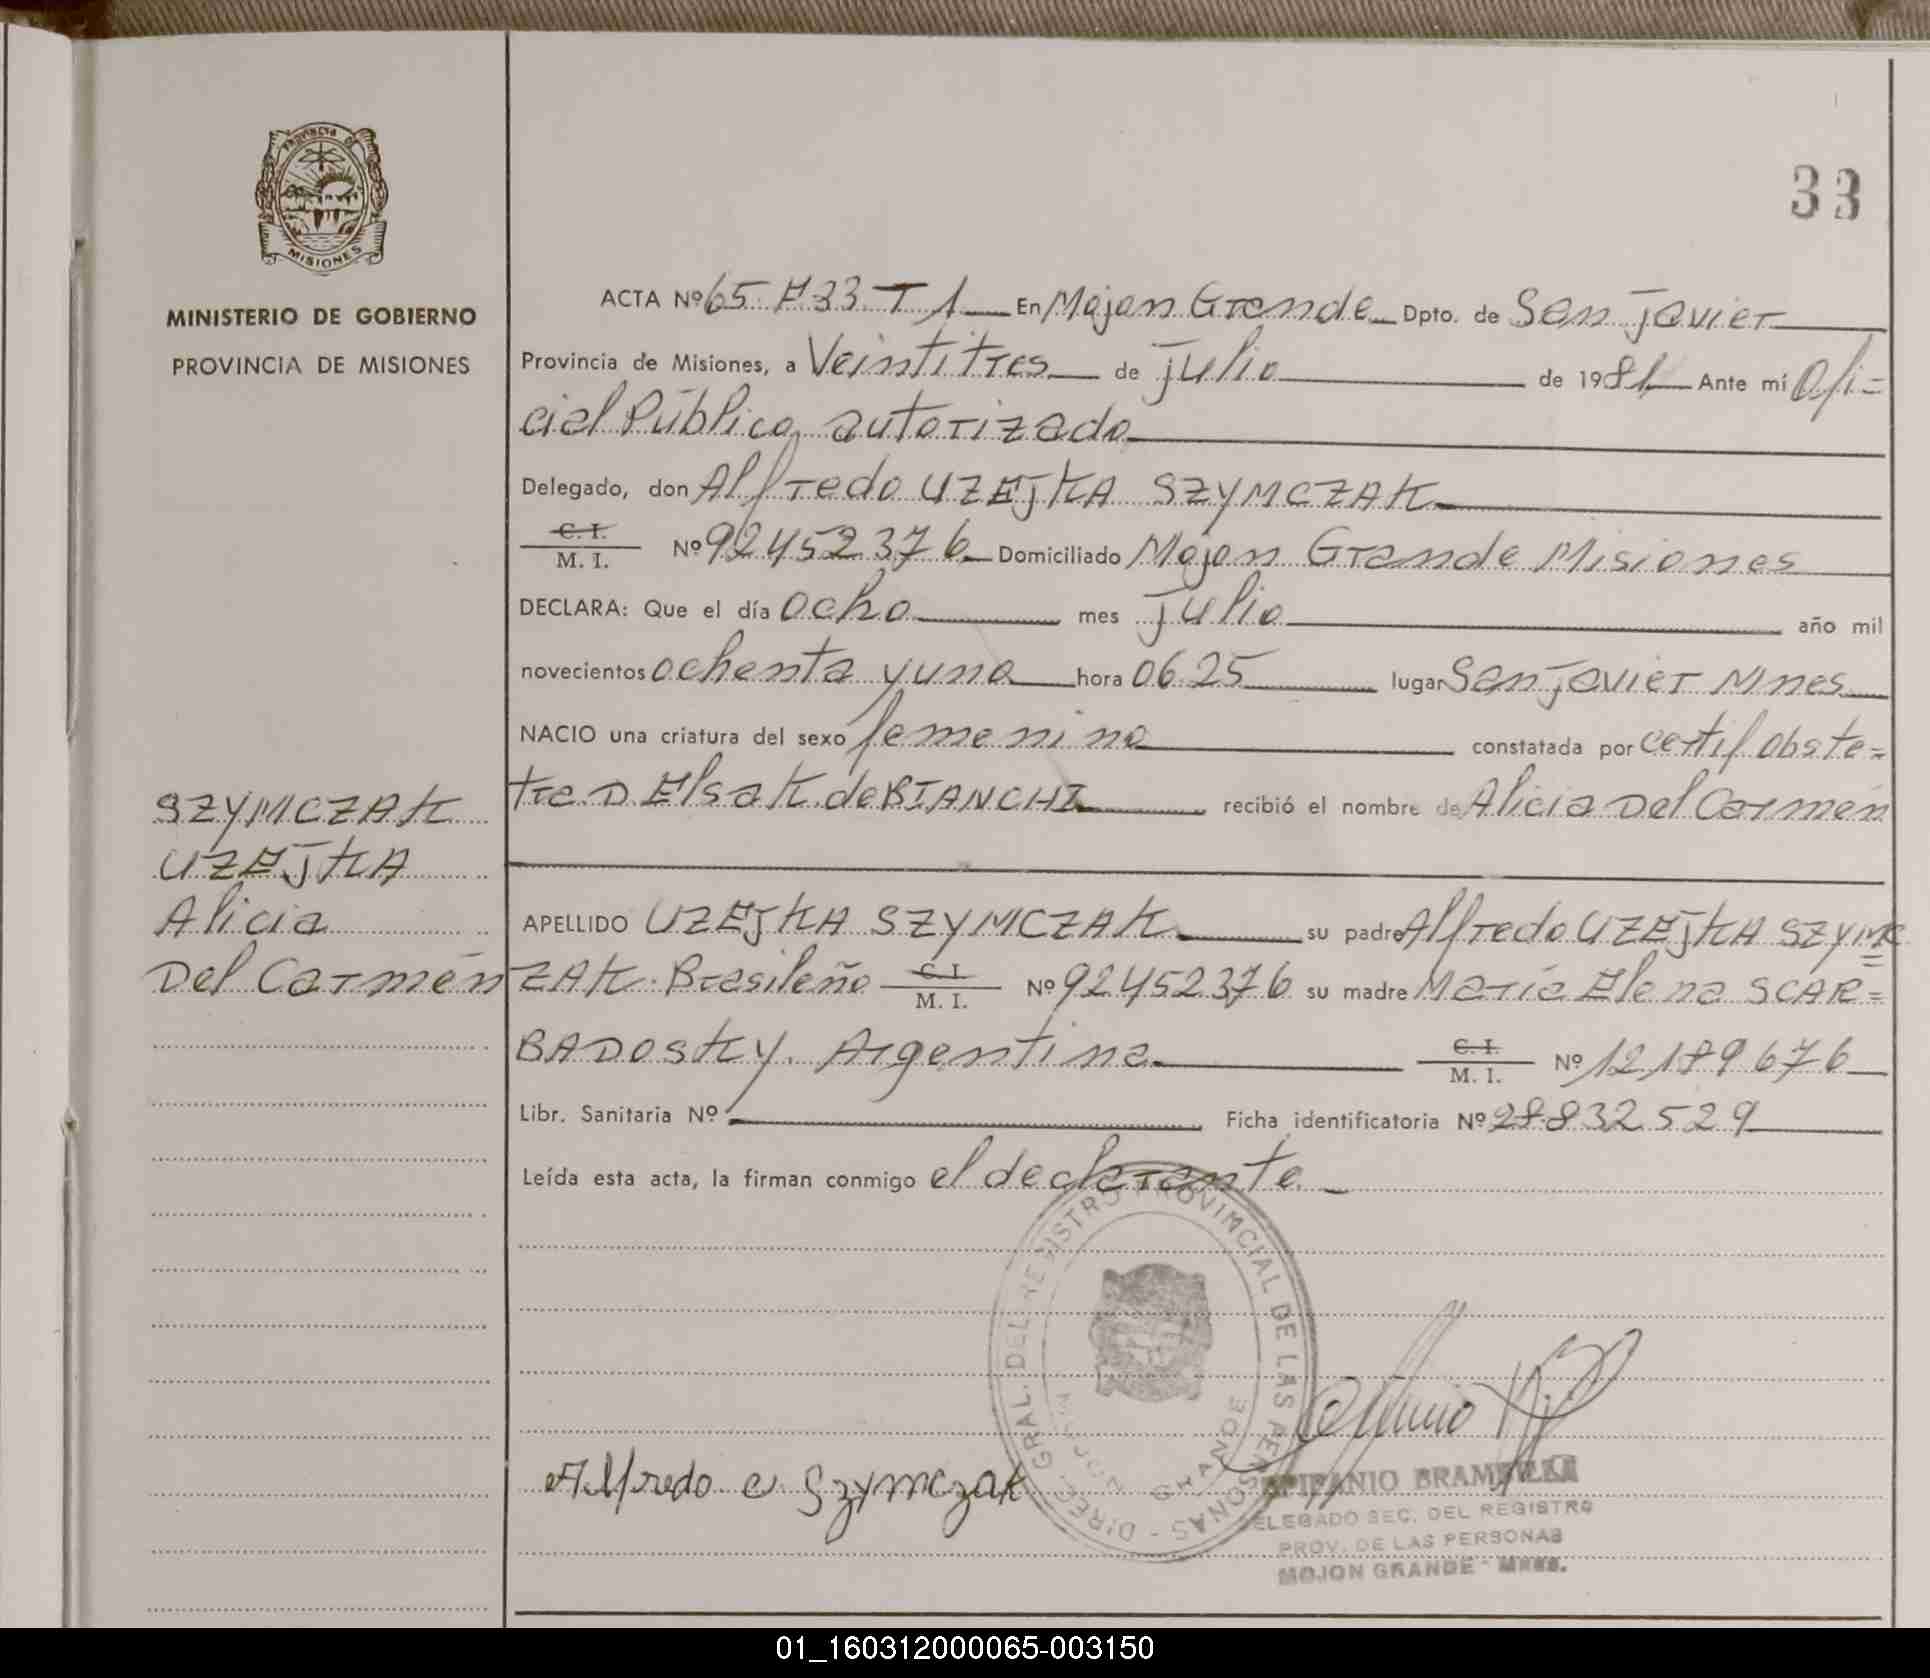 33
PROVINCIA DE
MISIONES
MINISTERIO DE GOBIERNO
PROVINCIA DE MISIONES
SZYMCZAK
UZEJKA
Alicia
Del Carmén
ACTA Nº 65 F 33 T 1 En Mojon Grande Dpto. de San Javier
Provincia de Misiones, a Veintitres de julio de 1981 Ante mí Ofi=
cial Público autorizado
Delegado, don Alfredo UZEJKA SZYMCZAK
C. I. / M. I. Nº 92452376 Domiciliado Mojon Grande Misiones
DECLARA: Que el día ocho mes julio año mil
novecientos ochenta y uno hora 06.25 lugar San Javier Mnes
NACIO una criatura del sexo femenino constatada por certif obste=
tra D Elsa K. de BIANCHI recibió el nombre de Alicia Del Carmén
APELLIDO UZEJKA SZYMCZAK su padre Alfredo UZEJKA SZYMC=
ZAK. Brasileño C. I. / M. I. Nº 92452376 su madre María Elena SCAR=
BADOSKY. Argentina C. I. / M. I. Nº 12189676
Libr. Sanitaria Nº Ficha identificatoria Nº 28832529
Leída esta acta, la firman conmigo el declarante.
DIREC. GRAL. DEL REGISTRO PROVINCIAL DE LAS PERSONAS
GRANDE
Alfredo U Szymczak
EPIFANIO
DELEGADO SEC. DEL REGISTRO
PROV. DE LAS PERSONAS
MOJON GRANDE - Mnes.
01_160312000065-003150